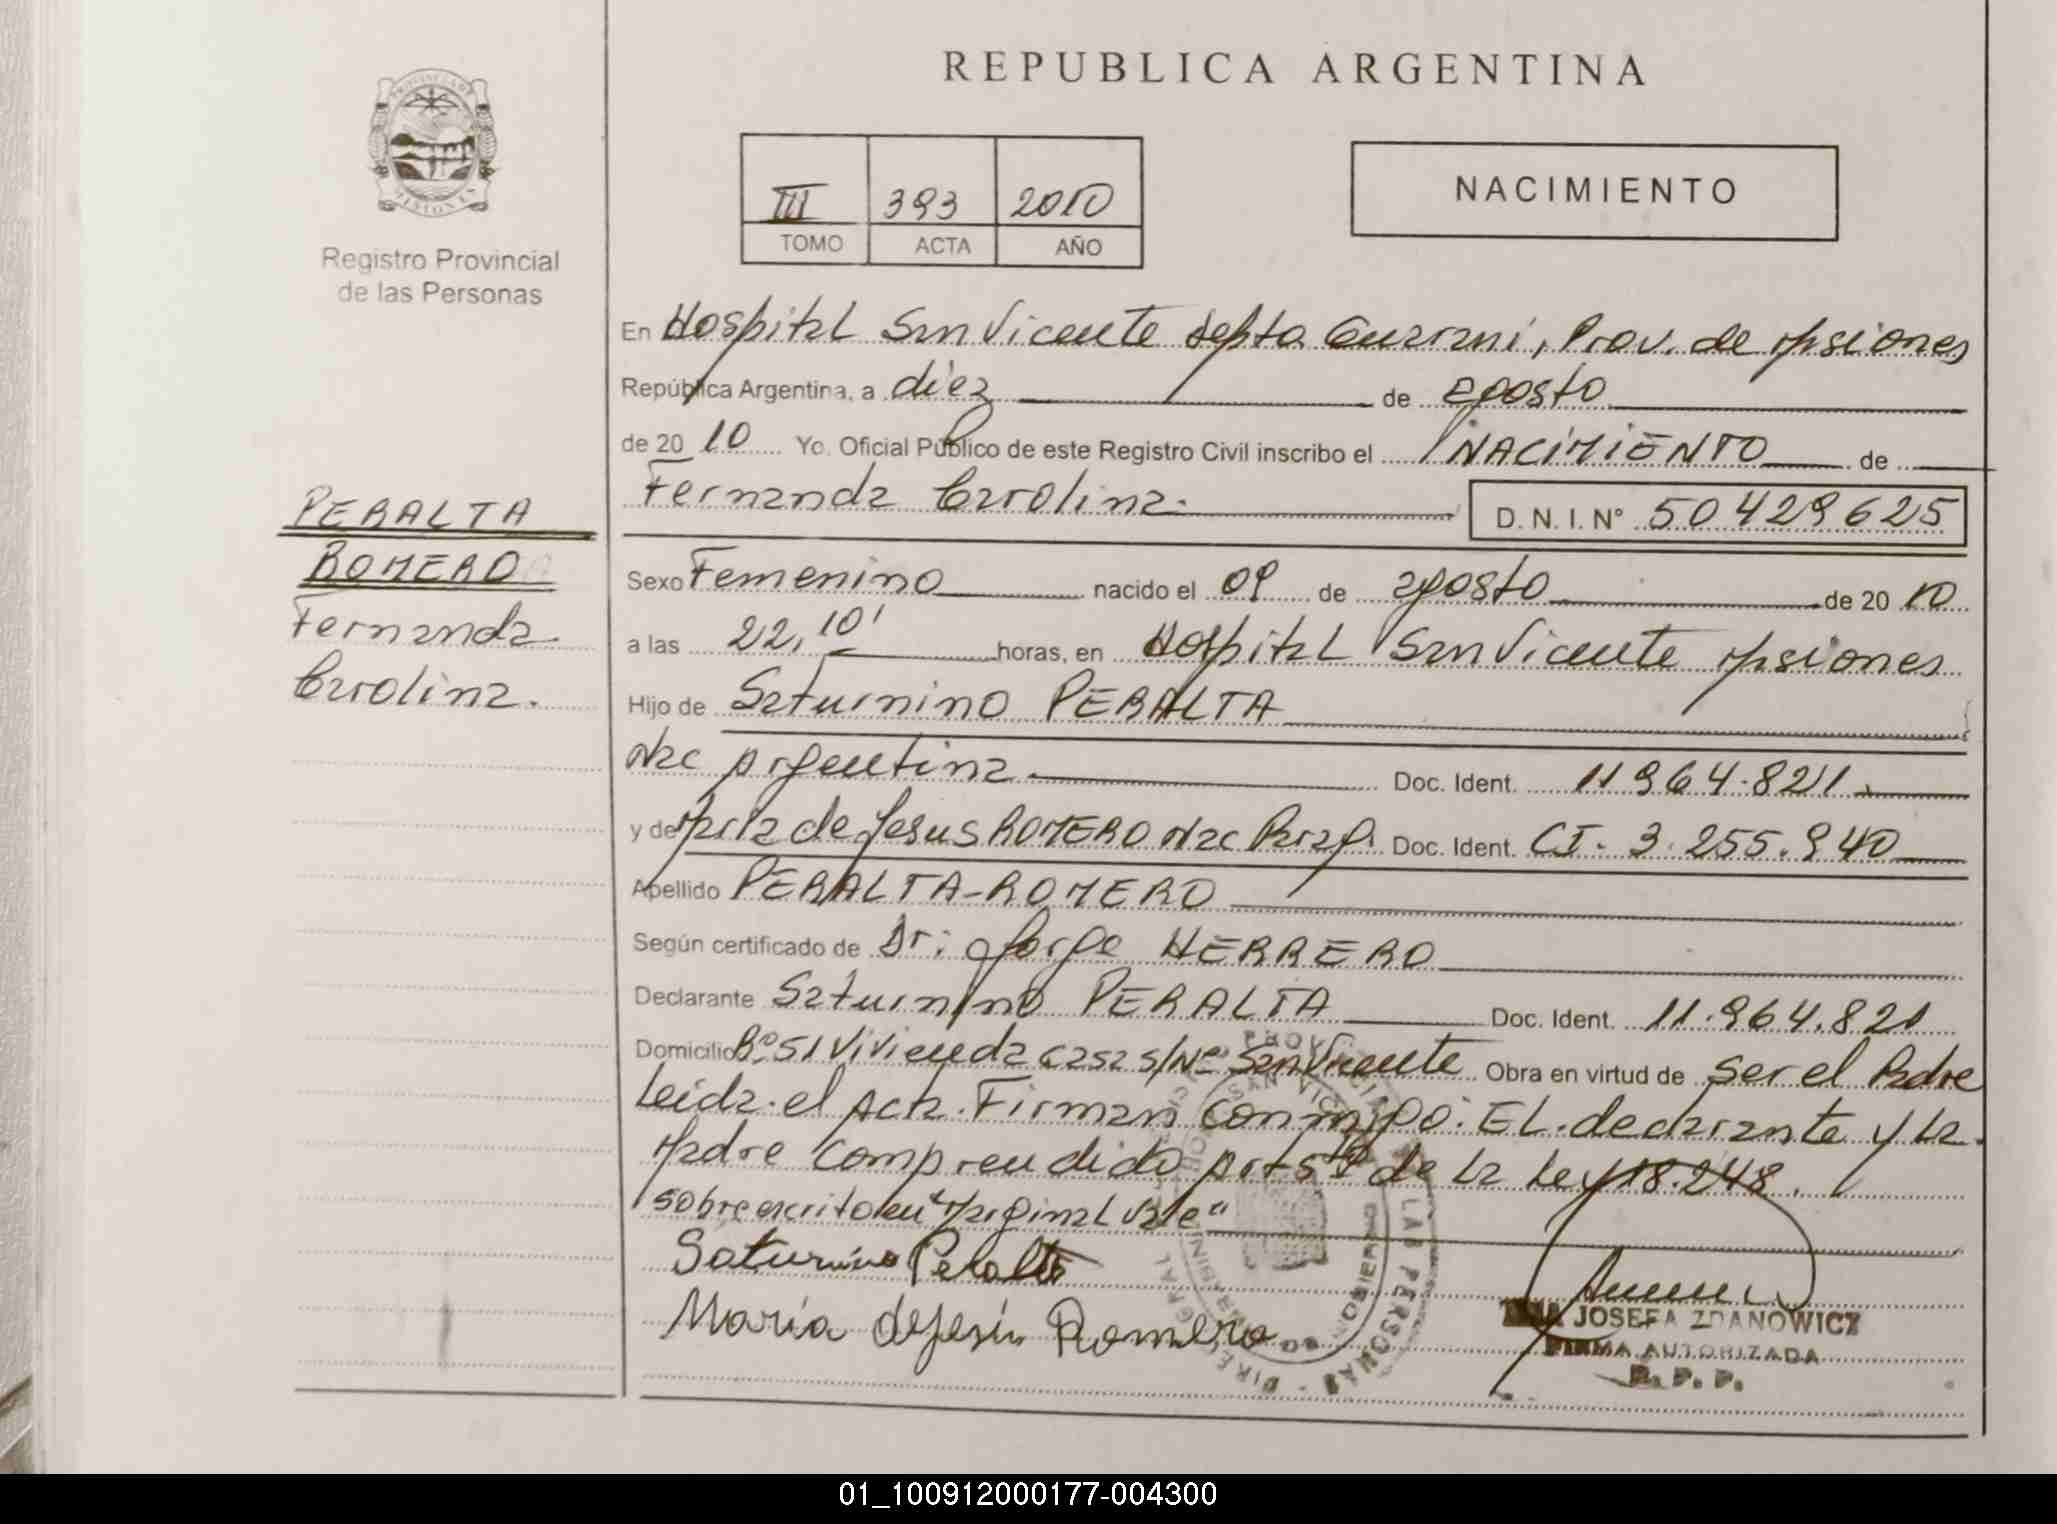 REPUBLICA ARGENTINA
PROVINCIA DE
MISIONES
Registro Provincial
de las Personas
III 393 2010
TOMO ACTA AÑO
NACIMIENTO
En Hospital San Vicente depto Guarani, Prov. de Misiones
República Argentina, a diez de agosto
de 20 10 Yo, Oficial Público de este Registro Civil inscribo el NACIMIENTO de
Fernanda Carolina.
D. N. I. N° 50429625
PERALTA
ROMERO
Fernanda
Carolina.
Sexo Femenino nacido el 09 de agosto de 20 10
a las 22,10' horas, en Hospital San Vicente Misiones
Hijo de Saturnino PERALTA
Nac Argentina Doc. Ident. 11964.821.
y de Maria de Jesus ROMERO Nac Parag. Doc. Ident. CI. 3.255.940
Apellido PERALTA-ROMERO
Según certificado de Dr: Jorge HERRERO
Declarante Saturnino PERALTA Doc. Ident. 11.964.821
Domicilio Bº 51 Vivienda casa s/Nº San Vicente Obra en virtud de ser el Padre
Leida el Acta. Firman conmigo: EL declarante y la
Madre comprendido Art 5º de la Ley 18.248.
sobreescrito en "Marginal vale"
Saturnino Peralta
María de Jesús Romero
JOSEFA ZDANOWICZ
FIRMA AUTORIZADA
R. P. P.
01_100912000177-004300